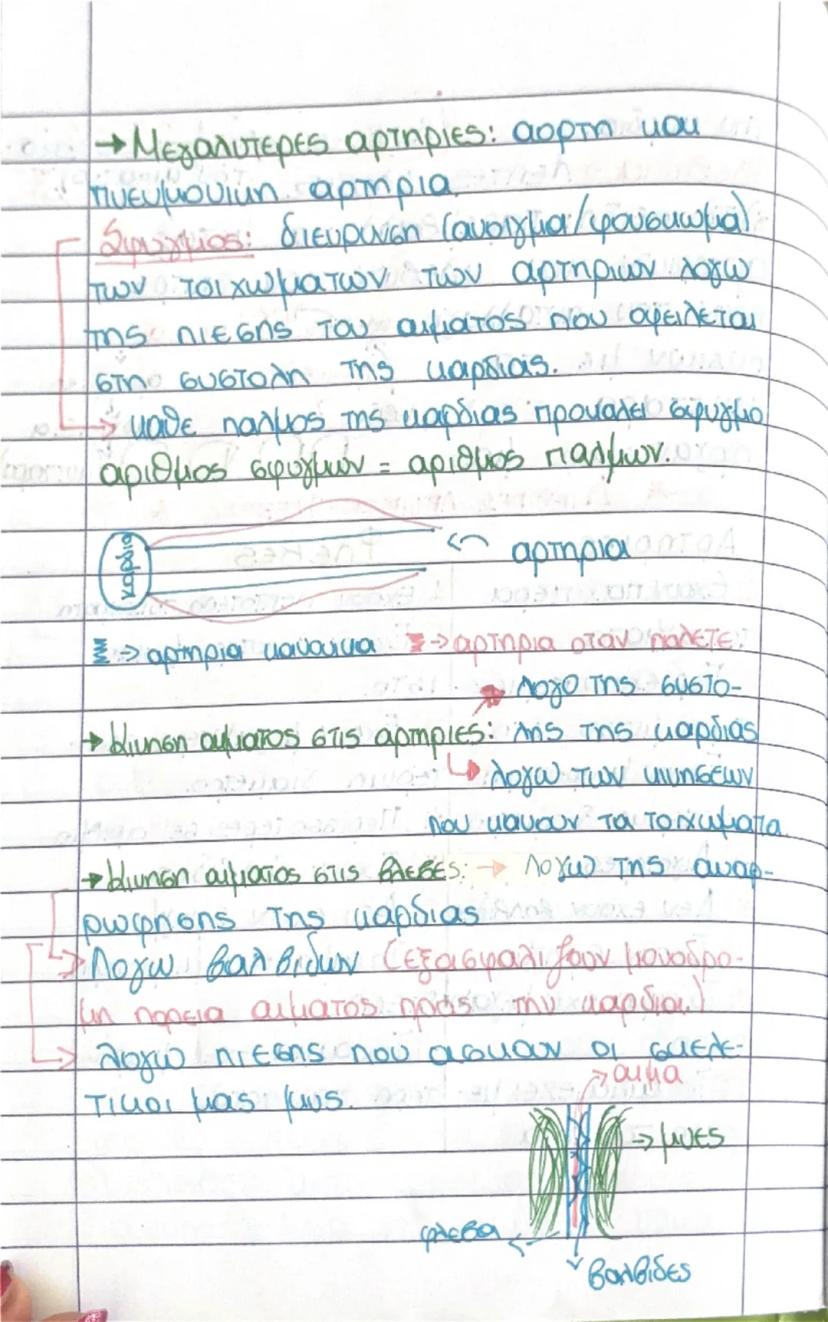 → Μεγαλυτερες αρτηριες: αορτη και
πνευμονικη αρτηρια.
Σφυγμος: διευρυνση (ανοιγμα/φουσκωμα)
των τοιχωματων των αρτηριων λογω
της πιεσης του αιματος που οφειλεται
στη συστολη της καρδιας.
→ καθε παλμος της καρδιας προκαλει σφυγμο
αριθμος σφυγμων = αριθμος παλμων.
καρδια
αρτηρια
→ αρτηρια κανονικα → αρτηρια οταν παλετε.
→ λογο της συστο-
→ κινηση αιματος στις αρτηριες: λης της καρδιας
→ λογω των κινησεων
που κανουν τα τοιχωματα
→ κινηση αιματος στις φλεβες: → λογω της αναρ-
ρωφησης της καρδιας
→ λογω βαλβιδων (εξασφαλιζουν μονοδρο-
μη πορεια αιματος προς την καρδια.)
→ λογω πιεσης που ασκουν οι σκελε-
τικοι μας μυς.
→ αιμα
→ μυες
φλεβα
βαλβιδες